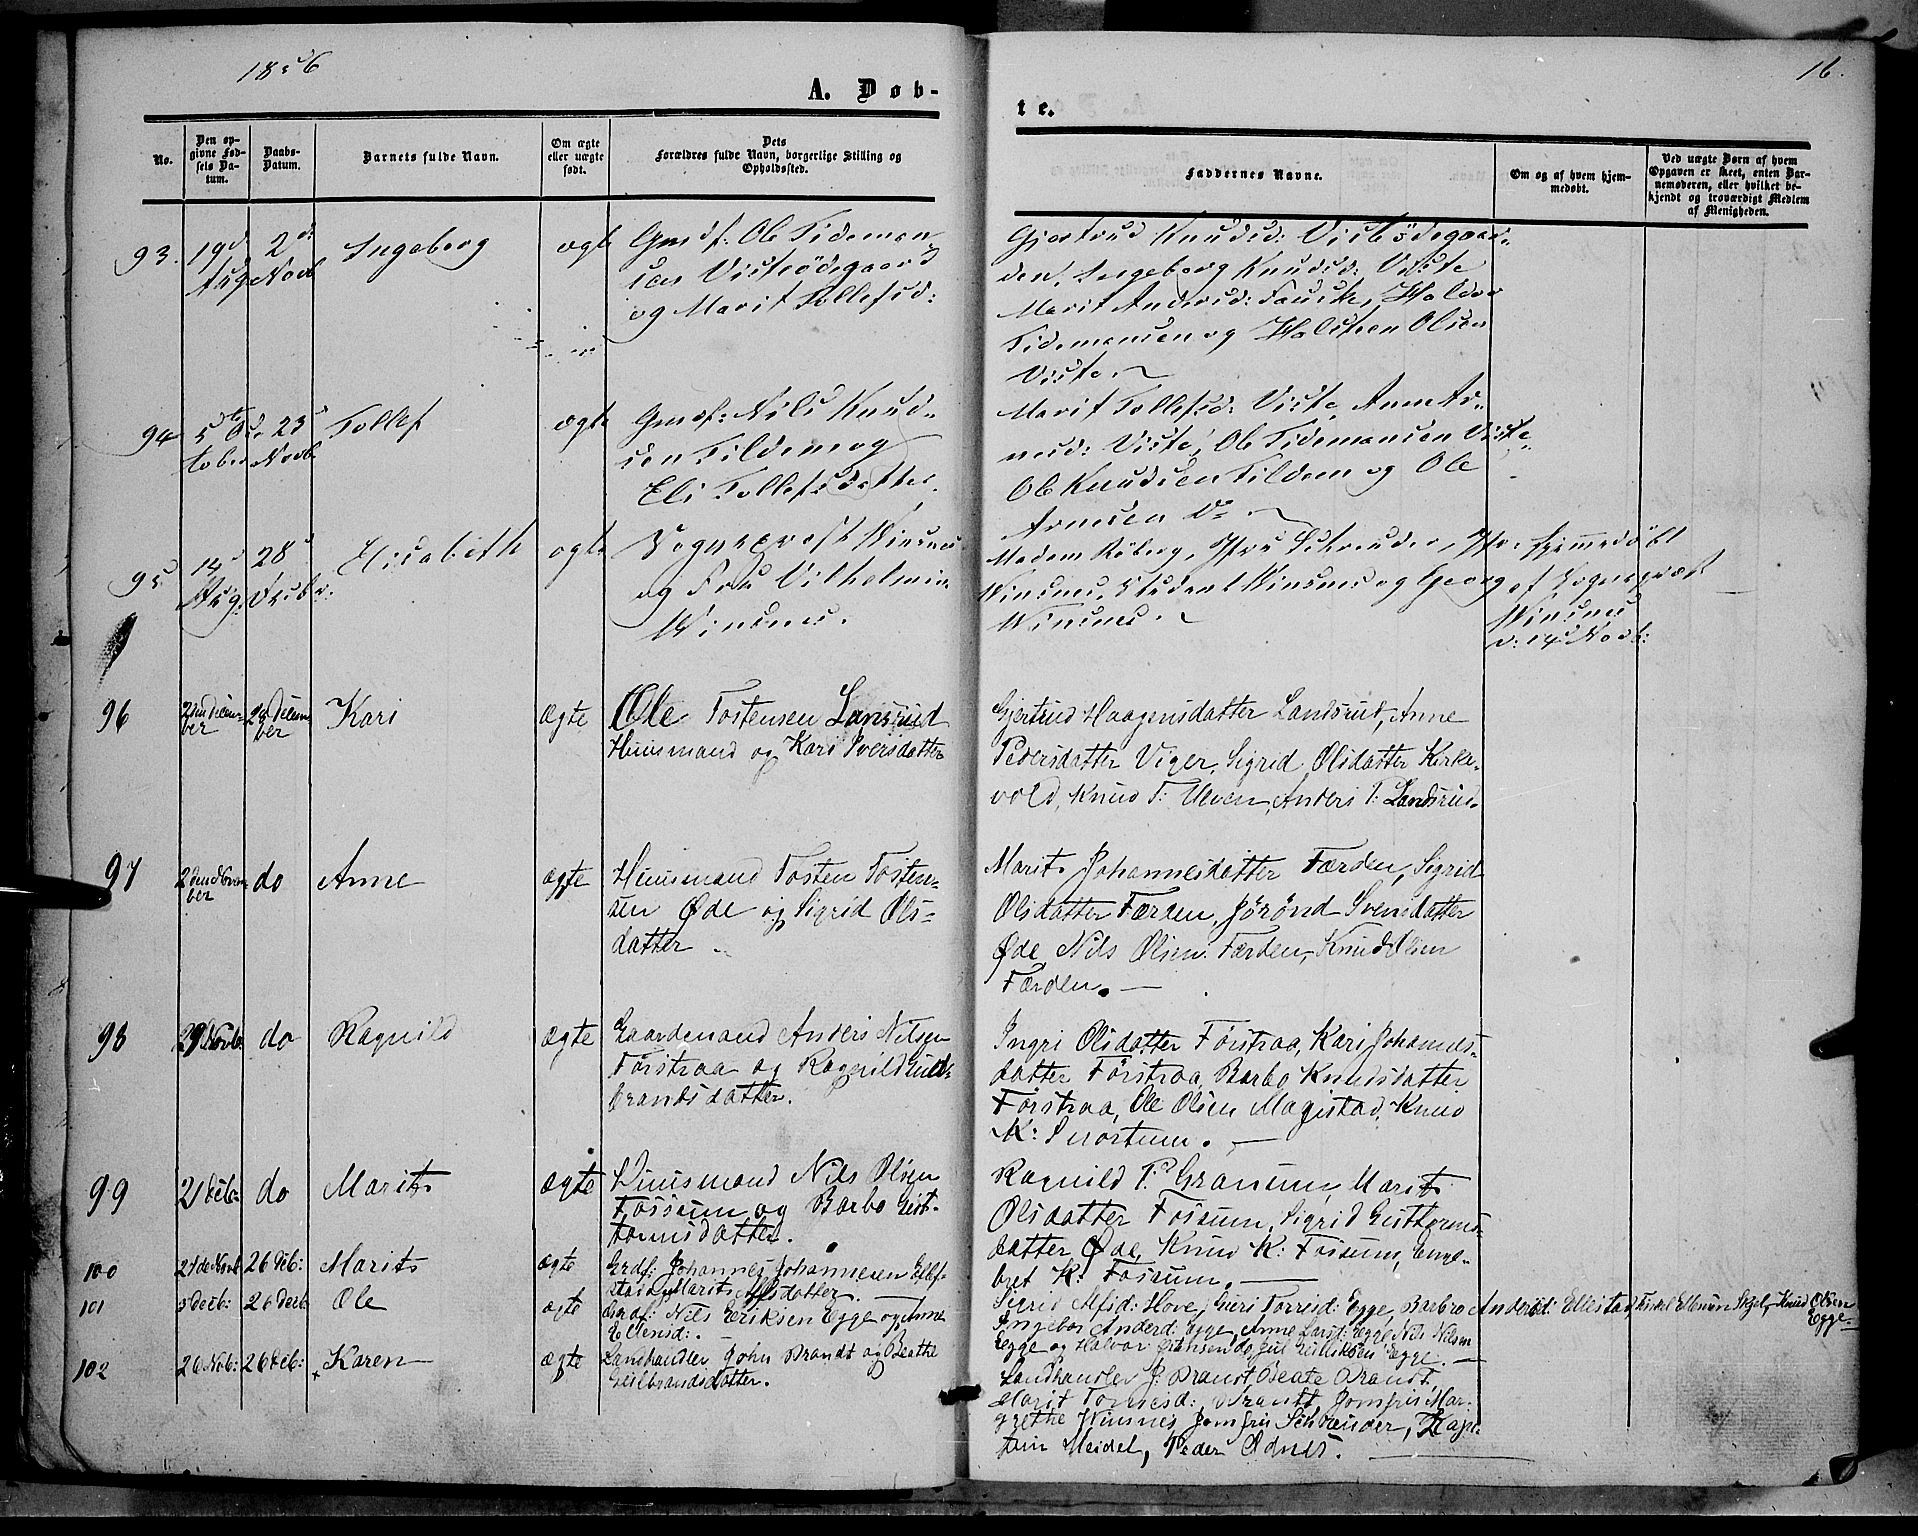 1856
16.
A. Døb-
te.
No.
Den op-
givne Fød-
sels Da-
tum.
Daabs-
Datum.
Barnets fulde Navn.
Om ægte
eller uægte
født.
Dets
Forældres fulde Navn, borgerlige Stilling og
Opholdssted.
Faddernes Navne.
Om og af hvem hjem-
medøbt.
Ved uægte Børn af hvem
Opgaven er skeet, enten Bar-
nemoderen, eller hvilket be-
kjendt og troværdigt Medlem
af Menigheden.
93. 19d Aug 2d Novb Ingeborg ægte
Gmdf: Ole Tideman-
sen Visteødegaard
og Marit Tollefsd:
Gjertrud Knudsd: Visteødegaar-
den, Ingeborg Knudsd: Viste
Marit Andersd: Fauske, Haldor
Tidemansen og Holsteen Olsen
Viste.
94 5te Oc- tober 23d Novb Tollef ægte
Gmdf: Nils Knud-
sen Tildem og
Eli Tollefsdatter.
Marit Tollefsd: Viste, Anne Ar-
nesd: Viste, Ole Tidemansen Viste
Ole Knudsen Tildem og Ole
Arnesen Do
95 14d Aug. 28d Elisabeth ægte
Sognepræst Winsnes
og Frue Vilhelmine
Winsnes.
Madam Röberg, Jfru Schreuder, Jfr.
Winsnes, Student Winsnes og Georg
Winsnes.
Hjemmedöbt
af Sognepræst
Winsnes
d: 14d Novb:
96 2den Decem-
ber 28 Decem
ber Kari ægte
Ole Tostensen Landsrud
Huusmand og Kari Iversdatter
Gjertrud Haagensdatter Landsrud, Anne
Pedersdatter Viger, Sigrid Olsdatter Kirke-
vold, Knud T: Ulven, Anders T: Landsrud.
97 2den Novem-
ber do Anne ægte
Huusmand Tosten Tosten-
sen Øde og Sigrid Ols-
datter
Marit Johannesdatter Færden, Sigrid
Olsdatter Færden, Jörönd Svensdatter
Øde, Nils Olsen Færden, Knud Olsen
Færden.
98 29 Novb: do Ragnild ægte
Gaardmand Anders Nilsen
Förstraa og Ragnild Guld-
brandsdatter.
Ingri Olsdatter Förstraa, Kari Johannes-
datter Förstraa, Barbo Knudsdatter
Förstraa, Ole Olsen Magistad, Knud
K: Snortum.
99 21 Decb: do Marit ægte
Huusmand Nils Olsen
Fossum og Barbo Gut-
tormsdatter.
Ragnild P: Granum, Marit
Olsdatter Fossum, Sigrid Guttorms-
datter Øde, Knud K: Fossum, Enge-
bret K: Fossum.
100 21de Novb 26 Decb: Marit ægte
Grdf: Johannes Johannesen Elle-
stad og Marit Alfsdatter.
Sigrid Alfsd: Hove, Guri Torrisd: Egge, Barbro Andersd: Ellestad, Eskel Ellensen Skjel, Knud Olsen
Egge
101 5 Decb: 26 Decb Ole ægte
Grdf: Nils Eriksen Egge og Anne
Ellensd:
Ingebor Andersd: Egge, Anne Larsd: Egge, Nils Nilsen
Egge og Halvor Fransen do, Gul Eriksen Egge.
102 26 Novb: 26 Decb: Karen ægte
Landhandler John Brandt og Beathe
Gulbrandsdatter.
Landhandler J: Brandt, Beate Brandt,
Marit Tomesd: Brandt, Jomfru Mar-
grethe Winsnes, Jomfru Schreuder, Kap-
tain Meidel, Peder Odnes.